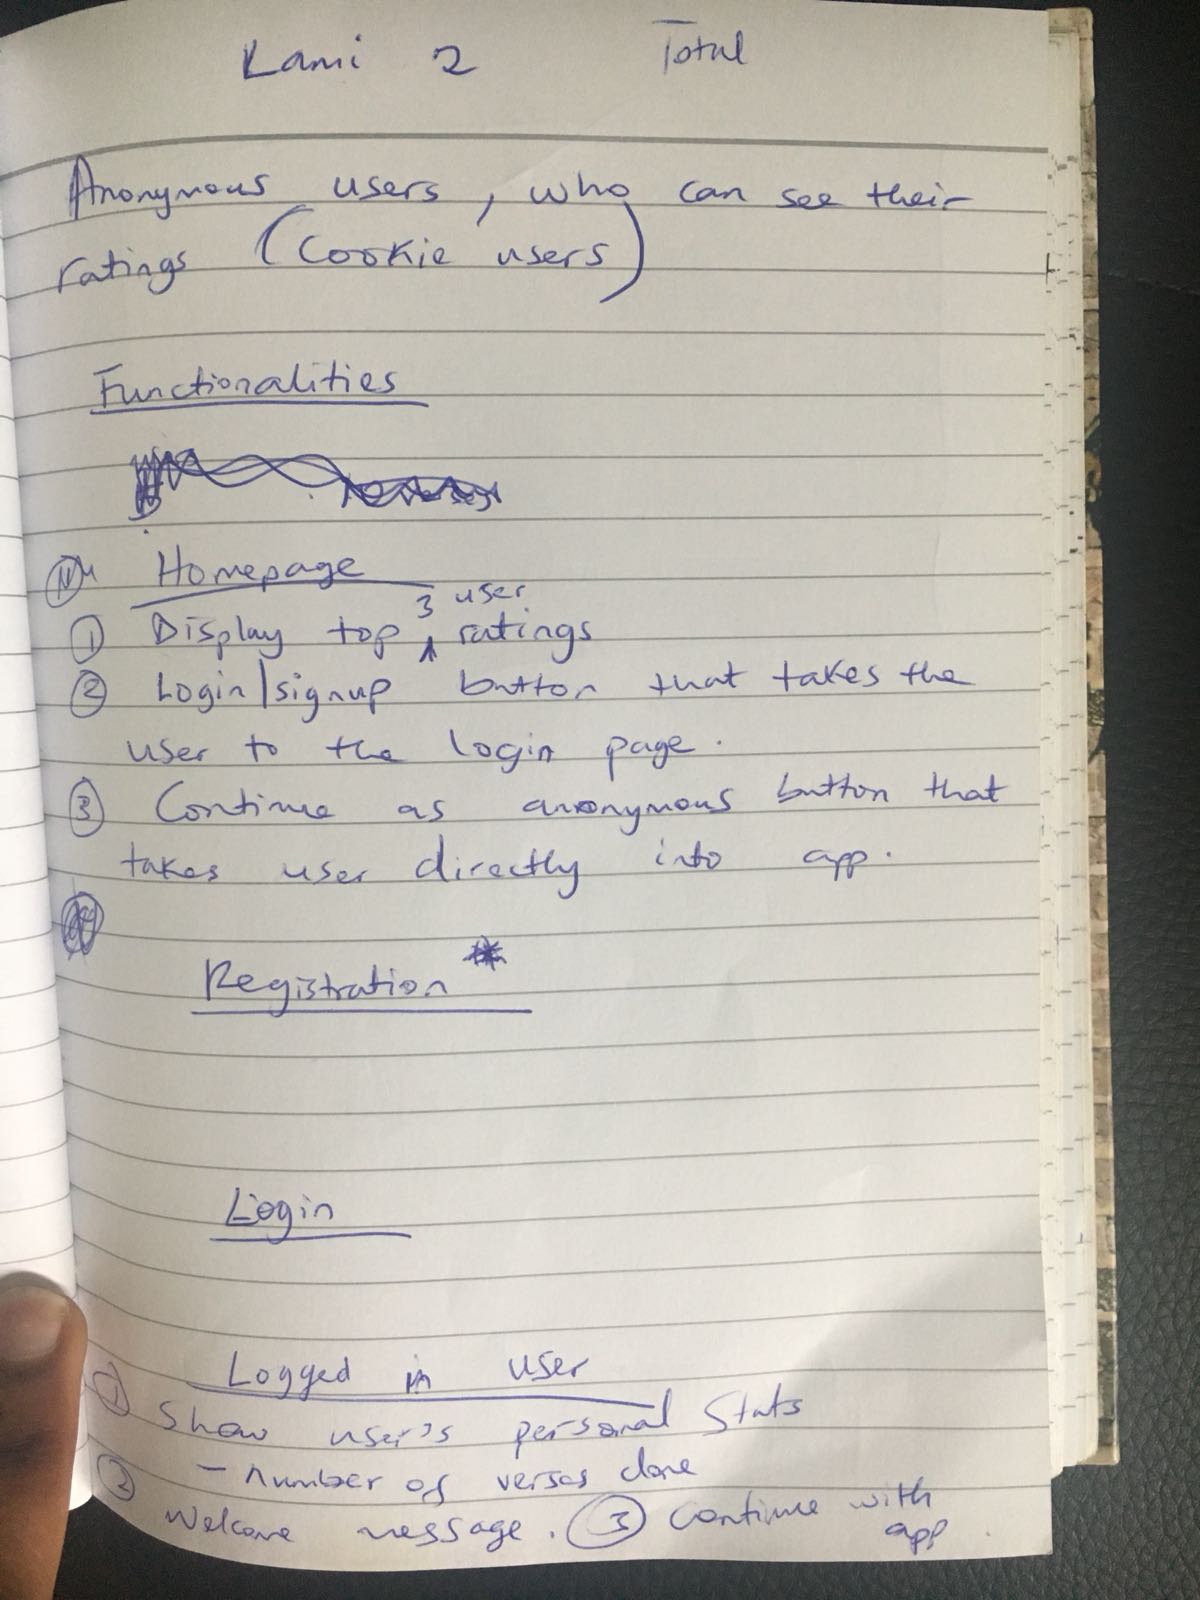 Kami 2 Total
Anonymous users, who can see their
ratings (Cookie users)
Functionalities
Homepage
3 user
① Display top ^ ratings
② Login/signup button that takes the
user to the login page.
③ Continue as anonymous button that
takes user directly into app.
Registration *
Login
Logged in user
① Show user's personal Stats
- number of verses done
② Welcome message. ③ Continue with
app.